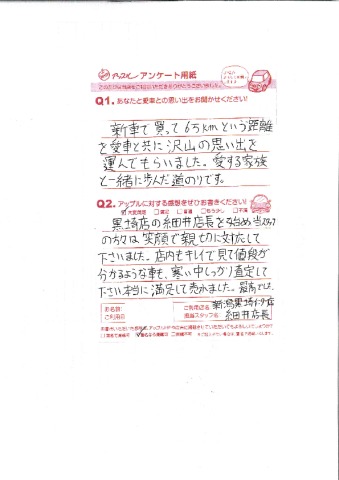 アップル アンケート用紙
Q1. あなたと愛車との思い出をお聞かせください!
新車で買って6万kmという距離
を愛車と共に沢山の思い出を
運んでもらいました。愛する家族
と一緒に歩んだ道のりです。
Q2. アップルに対する感想をぜひお書きください!
大変満足 満足 普通 もう少し 不満
黒埼店の細井店長を始め当スタッフ
の方々は笑顔で親切に対応して
下さいました。店内もキレイで見て値段が
分かるような車も、寒い中しっかり査定して
下さい本当に満足して売れました。最高では、
お名前
ご利用日
ご利用店名 新潟黒埼インター店
担当スタッフ名 細井店長